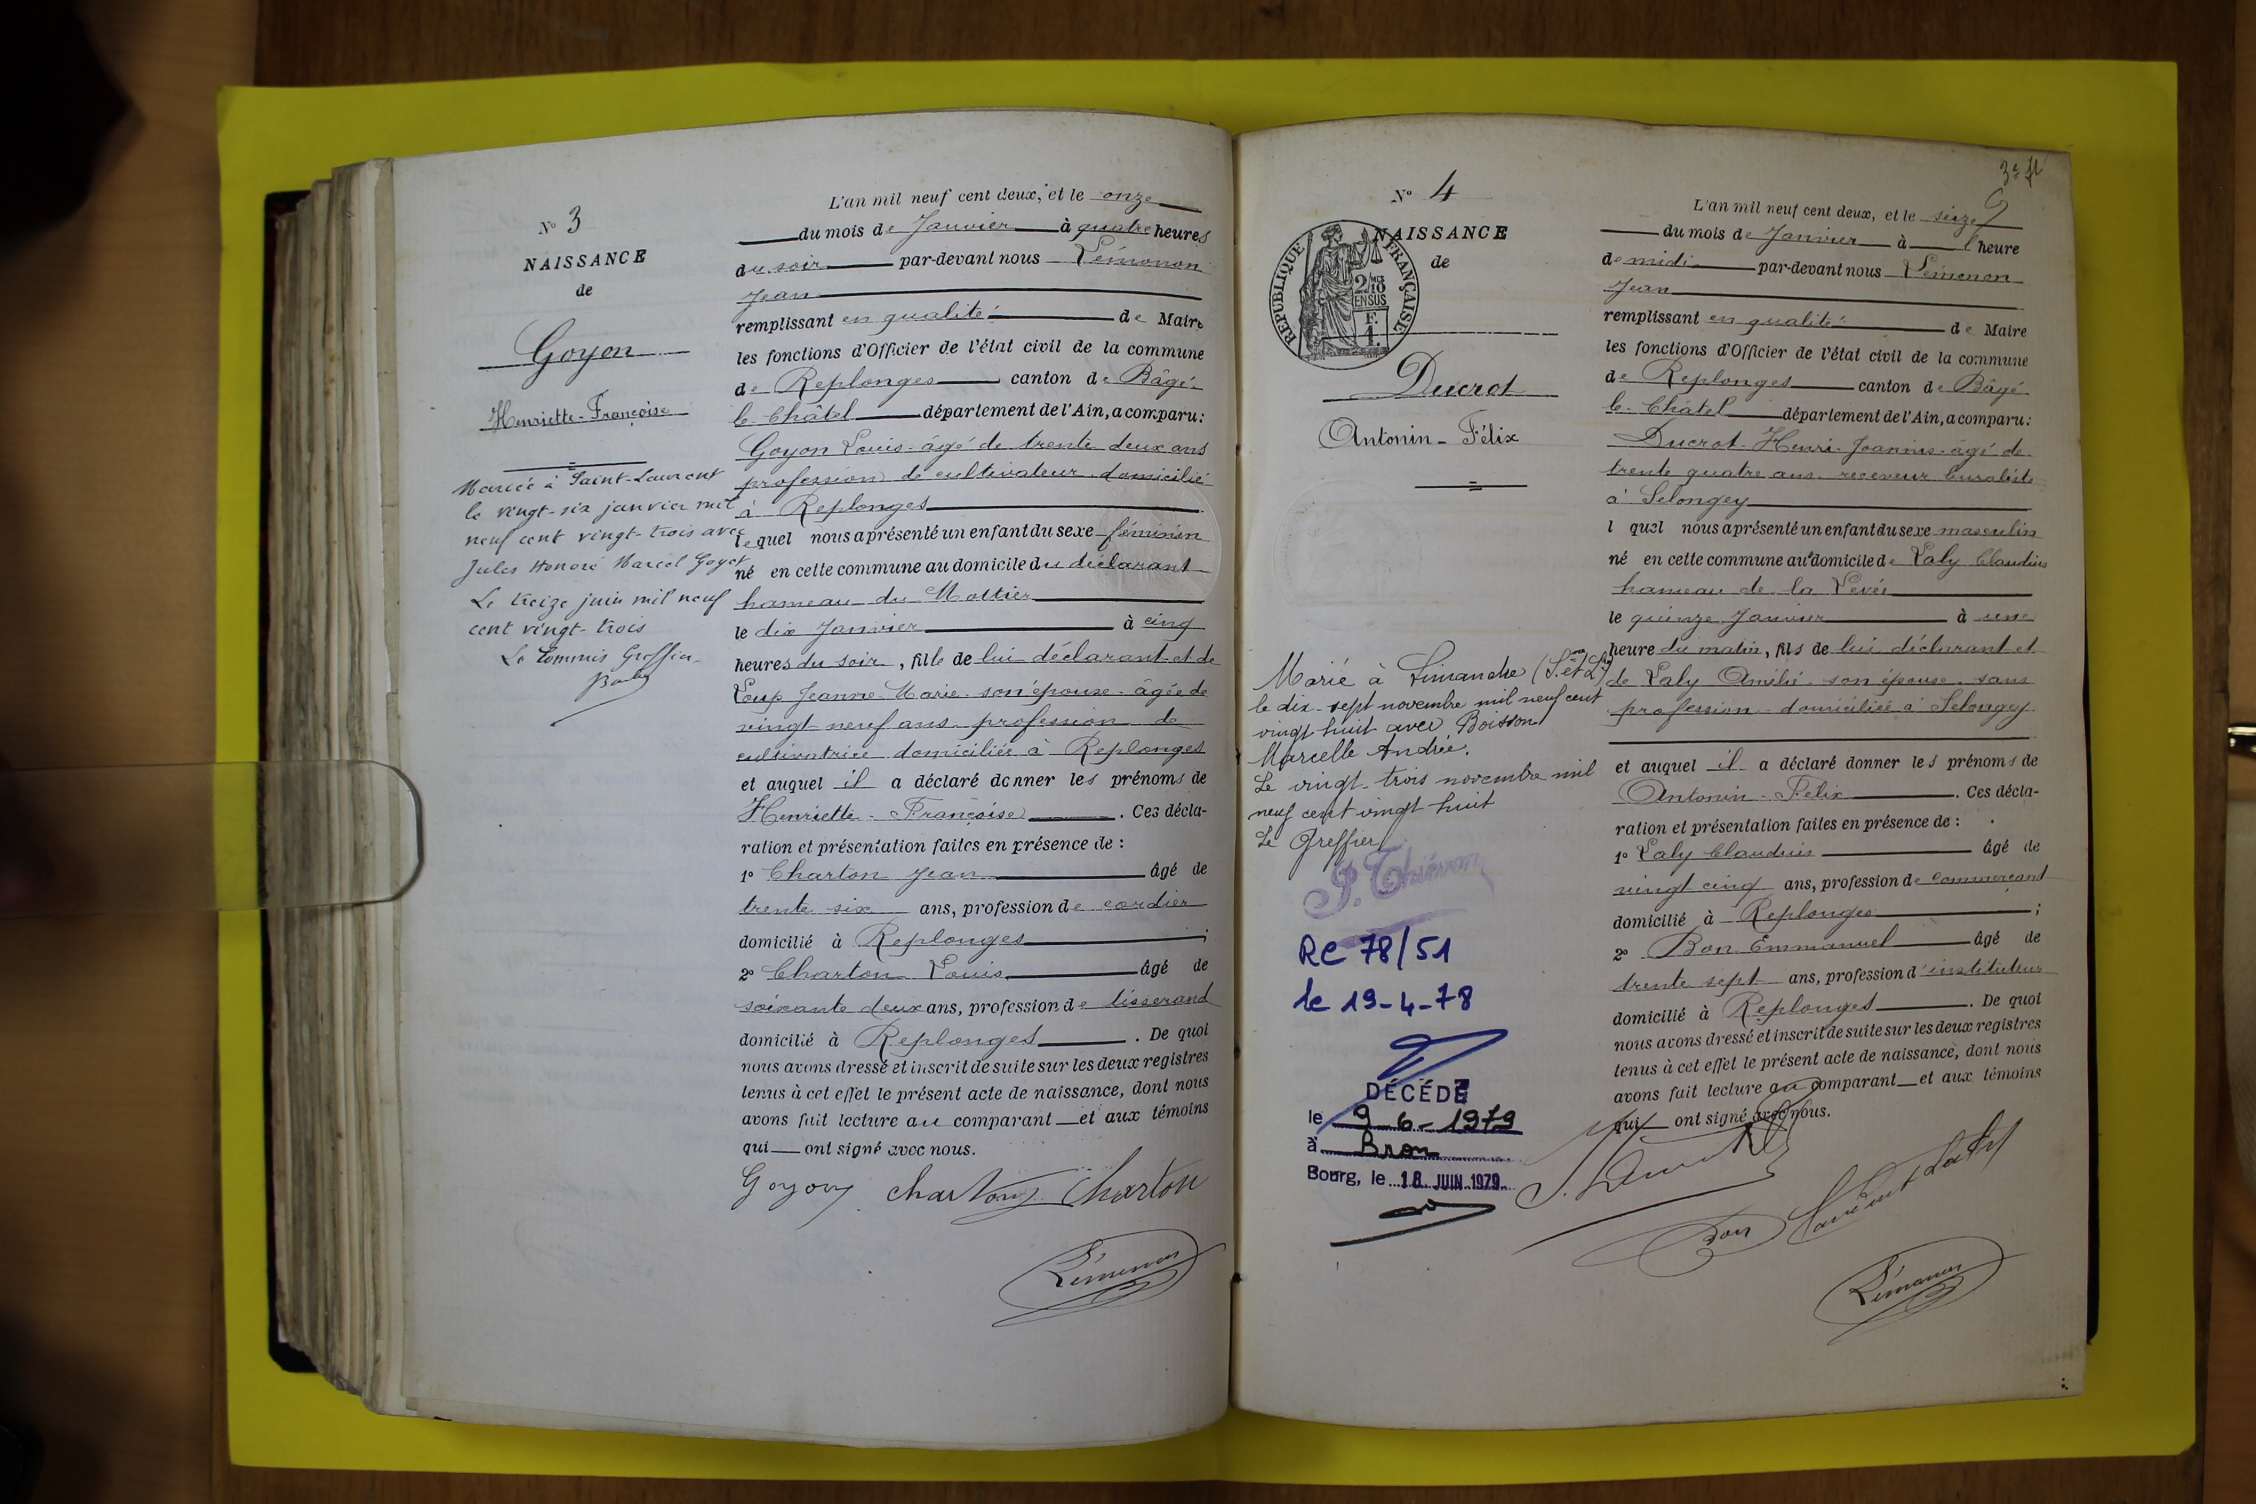 N° 3
NAISSANCE
de
Goyon
Henriette-Françoise
Mariée à Saint-Laurent
le vingt-six janvier mil
neuf cent vingt-trois avec
Jules Honoré Marcel Goyet
Le treize juin mil neuf
cent vingt-trois
Le Commis Greffier
L'an mil neuf cent deux, et le onze
du mois de Janvier à quatre heures
du soir par-devant nous Lémonon
Jean
remplissant en qualité de Maire
les fonctions d'Officier de l'état civil de la commune
de Replonges canton de Bâgé-
le-Châtel département de l'Ain, a comparu:
Goyon Louis âgé de trente deux ans
profession de cultivateur domicilié
à Replonges
lequel nous a présenté un enfant du sexe féminin
né en cette commune au domicile du déclarant
hameau du Mottier
le dix Janvier à cinq
heures du soir, fille de lui déclarant et de
Loup Jeanne-Marie son épouse âgée de
vingt neuf ans profession de
cultivatrice domiciliée à Replonges
et auquel il a déclaré donner les prénoms de
Henriette-Françoise. Ces décla-
ration et présentation faites en présence de :
1° Charton Jean âgé de
trente six ans, profession de cordier
domicilié à Replonges ;
2° Charton Louis âgé de
soixante deux ans, profession de tisserand
domicilié à Replonges. De quoi
nous avons dressé et inscrit de suite sur les deux registres
tenus à cet effet le présent acte de naissance, dont nous
avons fait lecture au comparant et aux témoins
qui ont signé avec nous.
Goyon Charton Charton
Lémonon
N° 4
NAISSANCE
de
RÉPUBLIQUE FRANÇAISE
2/10 EN SUS
F. 1.
Ducrot
Antonin-Félix
Marié à Simandre (S. et L.)
le dix-sept novembre mil neuf cent
vingt huit avec Boisson
Marcelle Andrée.
Le vingt-trois novembre mil
neuf cent vingt huit
Le Greffier
RC 78/51
le 19-4-78
DÉCÉDÉ
le 9-6-1979
à Bron
Bourg, le 18 JUIN 1979
L'an mil neuf cent deux, et le seize
du mois de Janvier à l'heure
de midi par-devant nous Lémonon
Jean
remplissant en qualité de Maire
les fonctions d'Officier de l'état civil de la commune
de Replonges canton de Bâgé
le-Châtel département de l'Ain, a comparu:
Ducrot Henri-Joannis âgé de
trente quatre ans receveur buraliste
à Selongey
l quel nous a présenté un enfant du sexe masculin
né en cette commune au domicile de Laly Claudius
hameau de la Levée
le quinze Janvier à une
heure du matin, fils de lui déclarant et
de Laly Amélie son épouse sans
profession domiciliée à Selongey
et auquel il a déclaré donner les prénoms de
Antonin-Félix. Ces décla-
ration et présentation faites en présence de :
1° Laly Claudius âgé de
vingt cinq ans, profession de commerçant
domicilié à Replonges ;
2° Bon Emmanuel âgé de
trente sept ans, profession d'instituteur
domicilié à Replonges. De quoi
nous avons dressé et inscrit de suite sur les deux registres
tenus à cet effet le présent acte de naissance, dont nous
avons fait lecture au comparant et aux témoins
qui ont signé avec nous.
Bon
Lémonon